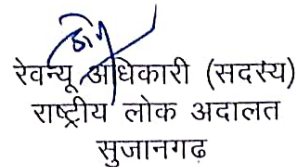 रेवन्यू अधिकारी (सदस्य)
राष्ट्रीय लोक अदालत
सुजानगढ़